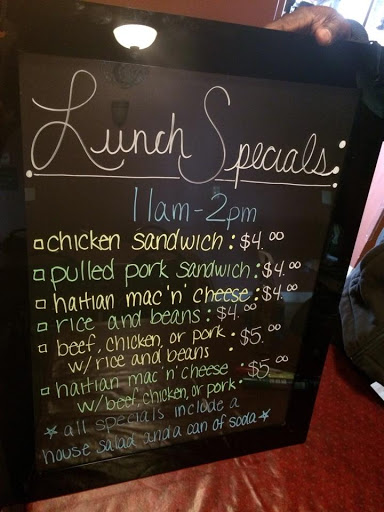 Lunch Specials:
11am-2pm
chicken sandwich: $4.00
pulled pork sandwich: $4.00
haitian mac 'n' cheese: $4.00
rice and beans: $4.00
beef, chicken, or pork
w/rice and beans : $5.00
haitian mac 'n' cheese
w/beef, chicken, or pork: $5.00
*all specials include a
house salad and a can of soda*